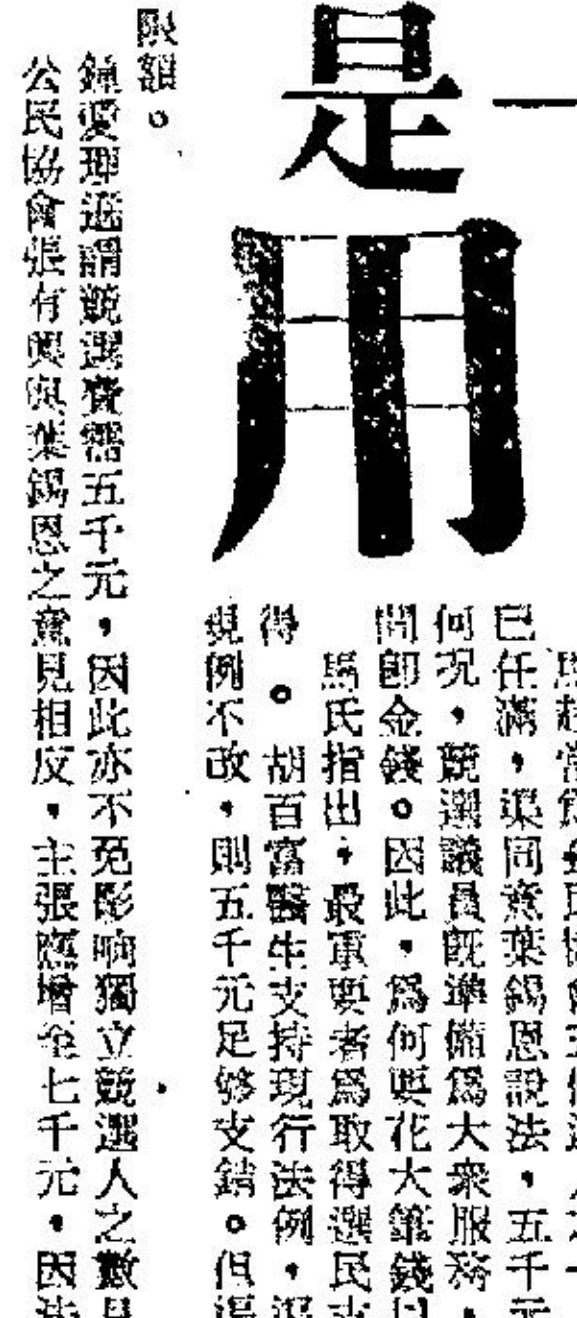 一
是用
已任滿，渠同意葉錫恩說法，五千元
何況，競選議員既準備為大衆服務，
間卽金錢。因此，為何要花大筆錢
馬氏指出，最重要者為取得選民支
得。胡百富醫生支持現行法例，
規例不改，則五千元足够支銷。但
限額。
鍾愛理遜謂競選費需五千元，因此亦不免影响獨立競選人之數
公民協會張有興與葉錫恩之意見相反，主張應增至七千元，因